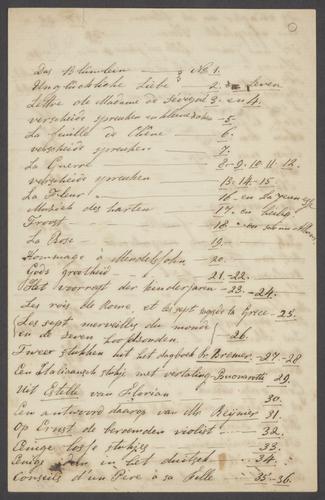 Das Blümlein — No 1.
Unglückliche Liebe — 2. Leven
Lettre de Madame de Sévigné 3. en 4.
verscheide spreuken en — 5
La feuille de Chêne — 6.
verscheide spreuken — 7.
La Guerre — 8-9. 10. 11. 12.
verscheide spreuken — 13. 14. 15
La Fleur — 16 en La jeune
Muziek des harten — 17. en Liebe
Troost — 18
La Rose — 19.
Hommage à Mendelssohn — 20.
Gods grootheid — 21-22.
Het voorregt der kinderjaren — 23 — 24.
Les rois de Rome, et les sept sages de la Grèce — 25.
Les sept merveilles du monde
en de zeven hoofdzonden. 26.
Twee stukken uit het dagboek Bremer. — 27 — 28
Een Italiaansch stukje met vertaling Buonarotti 29.
Uit Estelle van Florian — 30.
Een antwoord daarop van Mr Beijnier 31.
Op Ernst de beroemden violist — 32.
Eenige losse stukjes — 33.
Eenige in het duitsch — 34.
Conseils d'un Père à sa fille — 35-36.